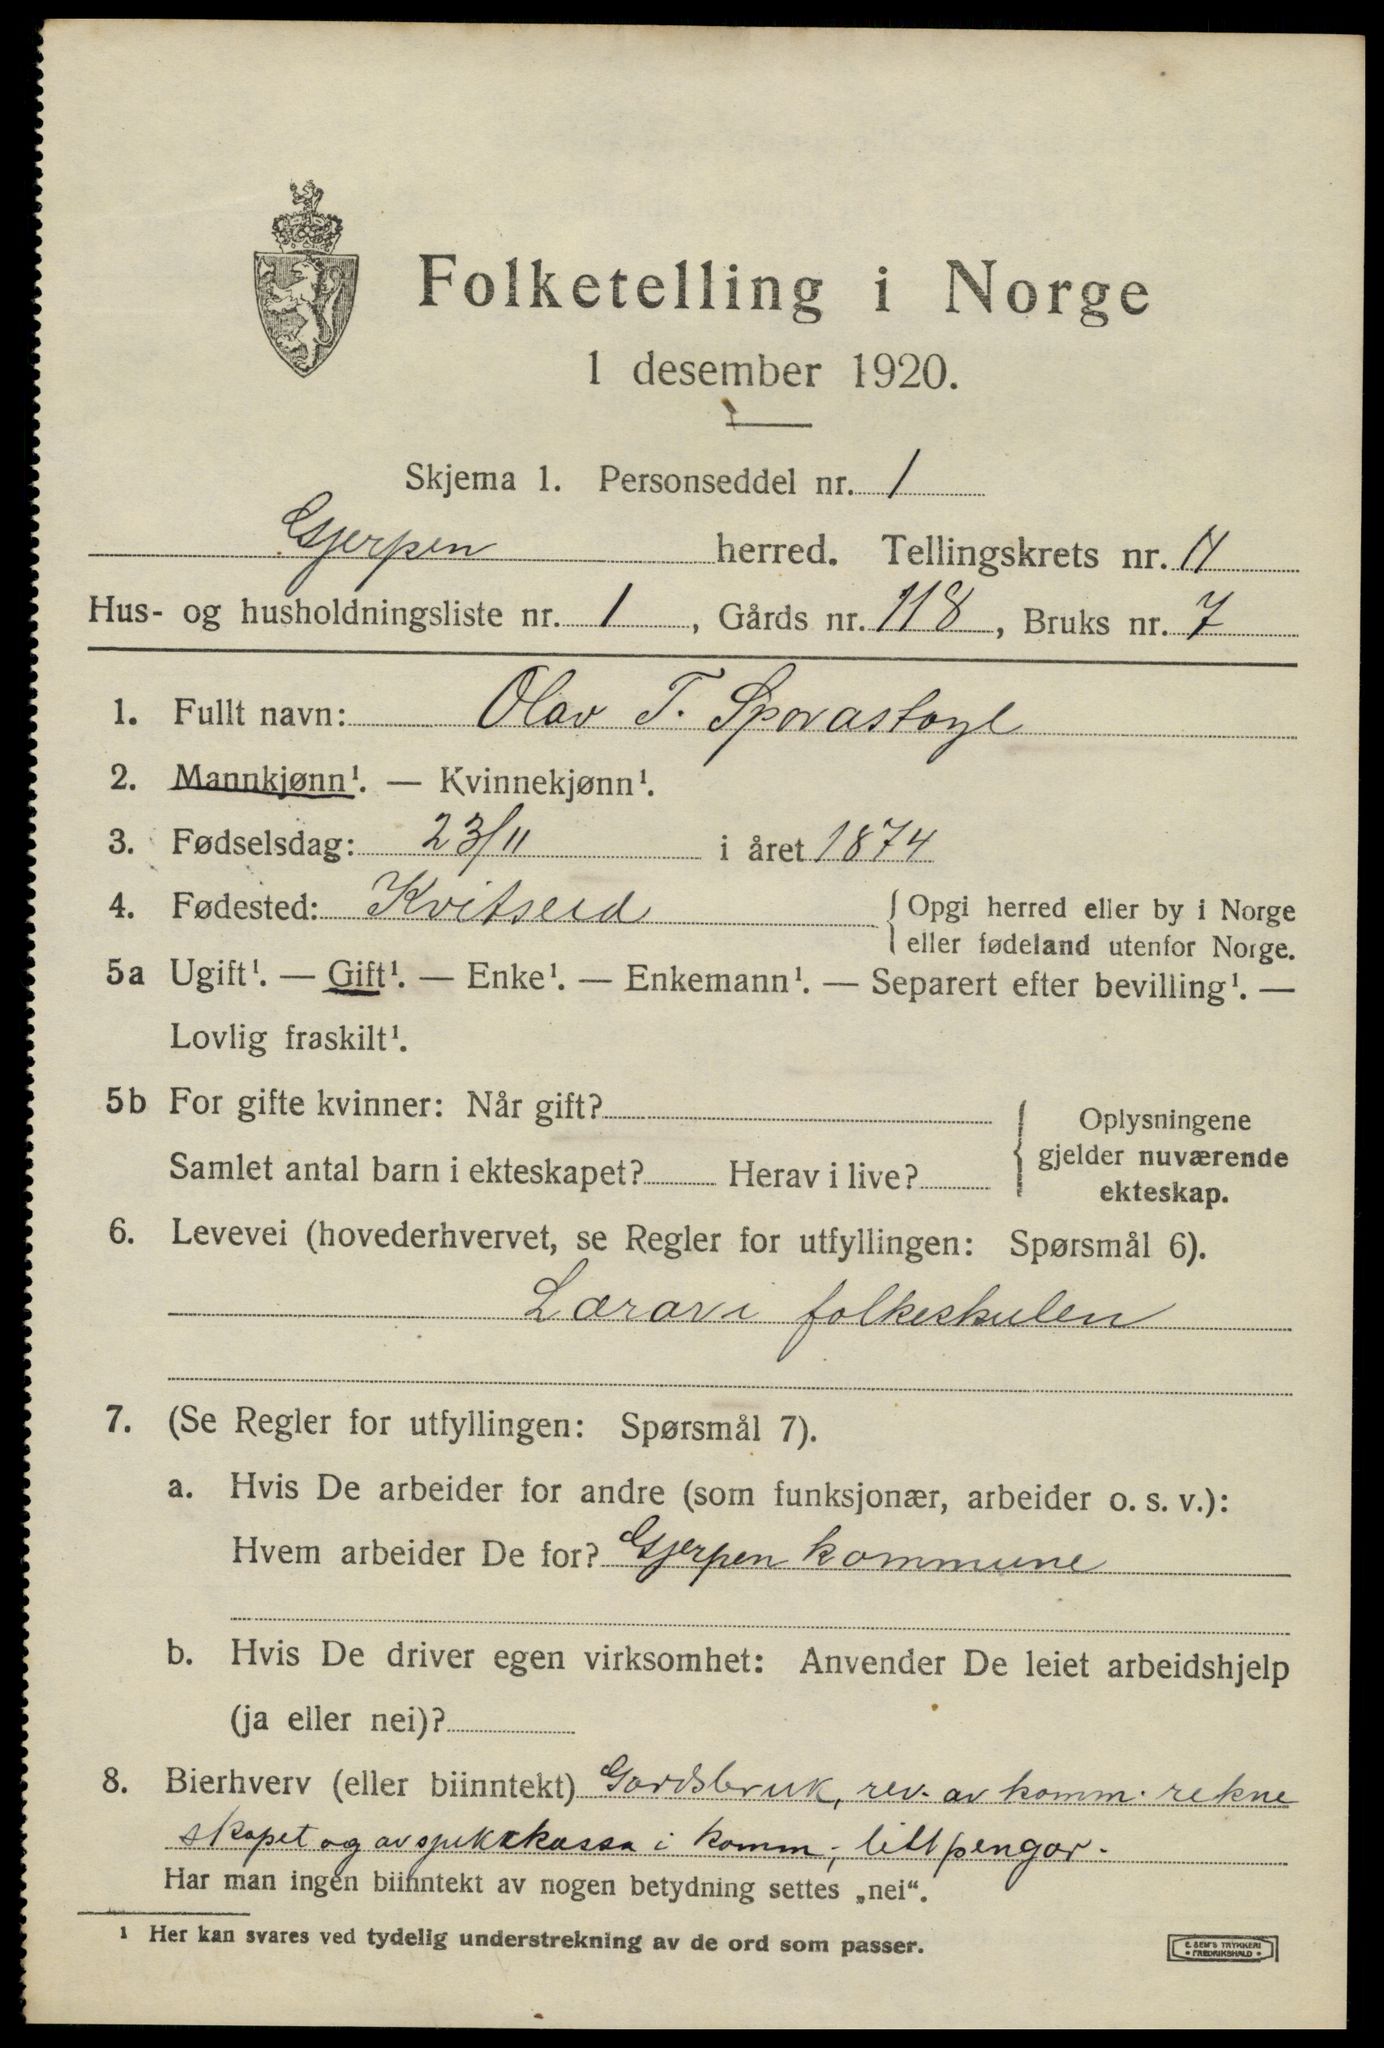 Folketelling i Norge
1 desember 1920.
Skjema 1. Personseddel nr. 1
Gjerpen herred. Tellingskrets nr. 11
Hus- og husholdningsliste nr. 1, Gårds nr. 118, Bruks nr. 7
1. Fullt navn: Olav T. Sporastoyl
2. Mannkjønn¹. — Kvinnekjønn¹.
3. Fødselsdag: 23/11 i året 1874
4. Fødested: Kvitseid { Opgi herred eller by i Norge
eller fødeland utenfor Norge.
5a Ugift¹. — Gift¹. — Enke¹. — Enkemann¹. — Separert efter bevilling¹. —
Lovlig fraskilt¹.
5b For gifte kvinner: Når gift?
Samlet antal barn i ekteskapet? Herav i live?
Oplysningene
gjelder nuværende
ekteskap.
6. Levevei (hovederhvervet, se Regler for utfyllingen: Spørsmål 6).
Lærar i folkeskulen
7. (Se Regler for utfyllingen: Spørsmål 7).
a. Hvis De arbeider for andre (som funksjonær, arbeider o. s. v.):
Hvem arbeider De for? Gjerpen kommune
b. Hvis De driver egen virksomhet: Anvender De leiet arbeidshjelp
(ja eller nei)?
8. Bierhverv (eller biinntekt) Gardsbruk, rev. av komm. rekne
skapet og av kassa i komm, litt pengar.
Har man ingen biinntekt av nogen betydning settes „nei“.
1 Her kan svares ved tydelig understrekning av de ord som passer.
E. SEM'S TRYKKERI
FREDRIKSHALD